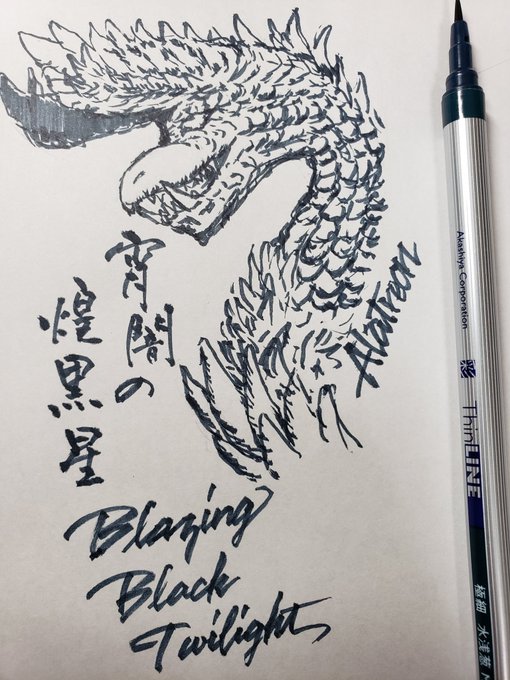 宵闇の
煌黒星
Alatreon
Blazing
Black
Twilight
Akashiya Corporation
ThinLINE
極細 水浅葱